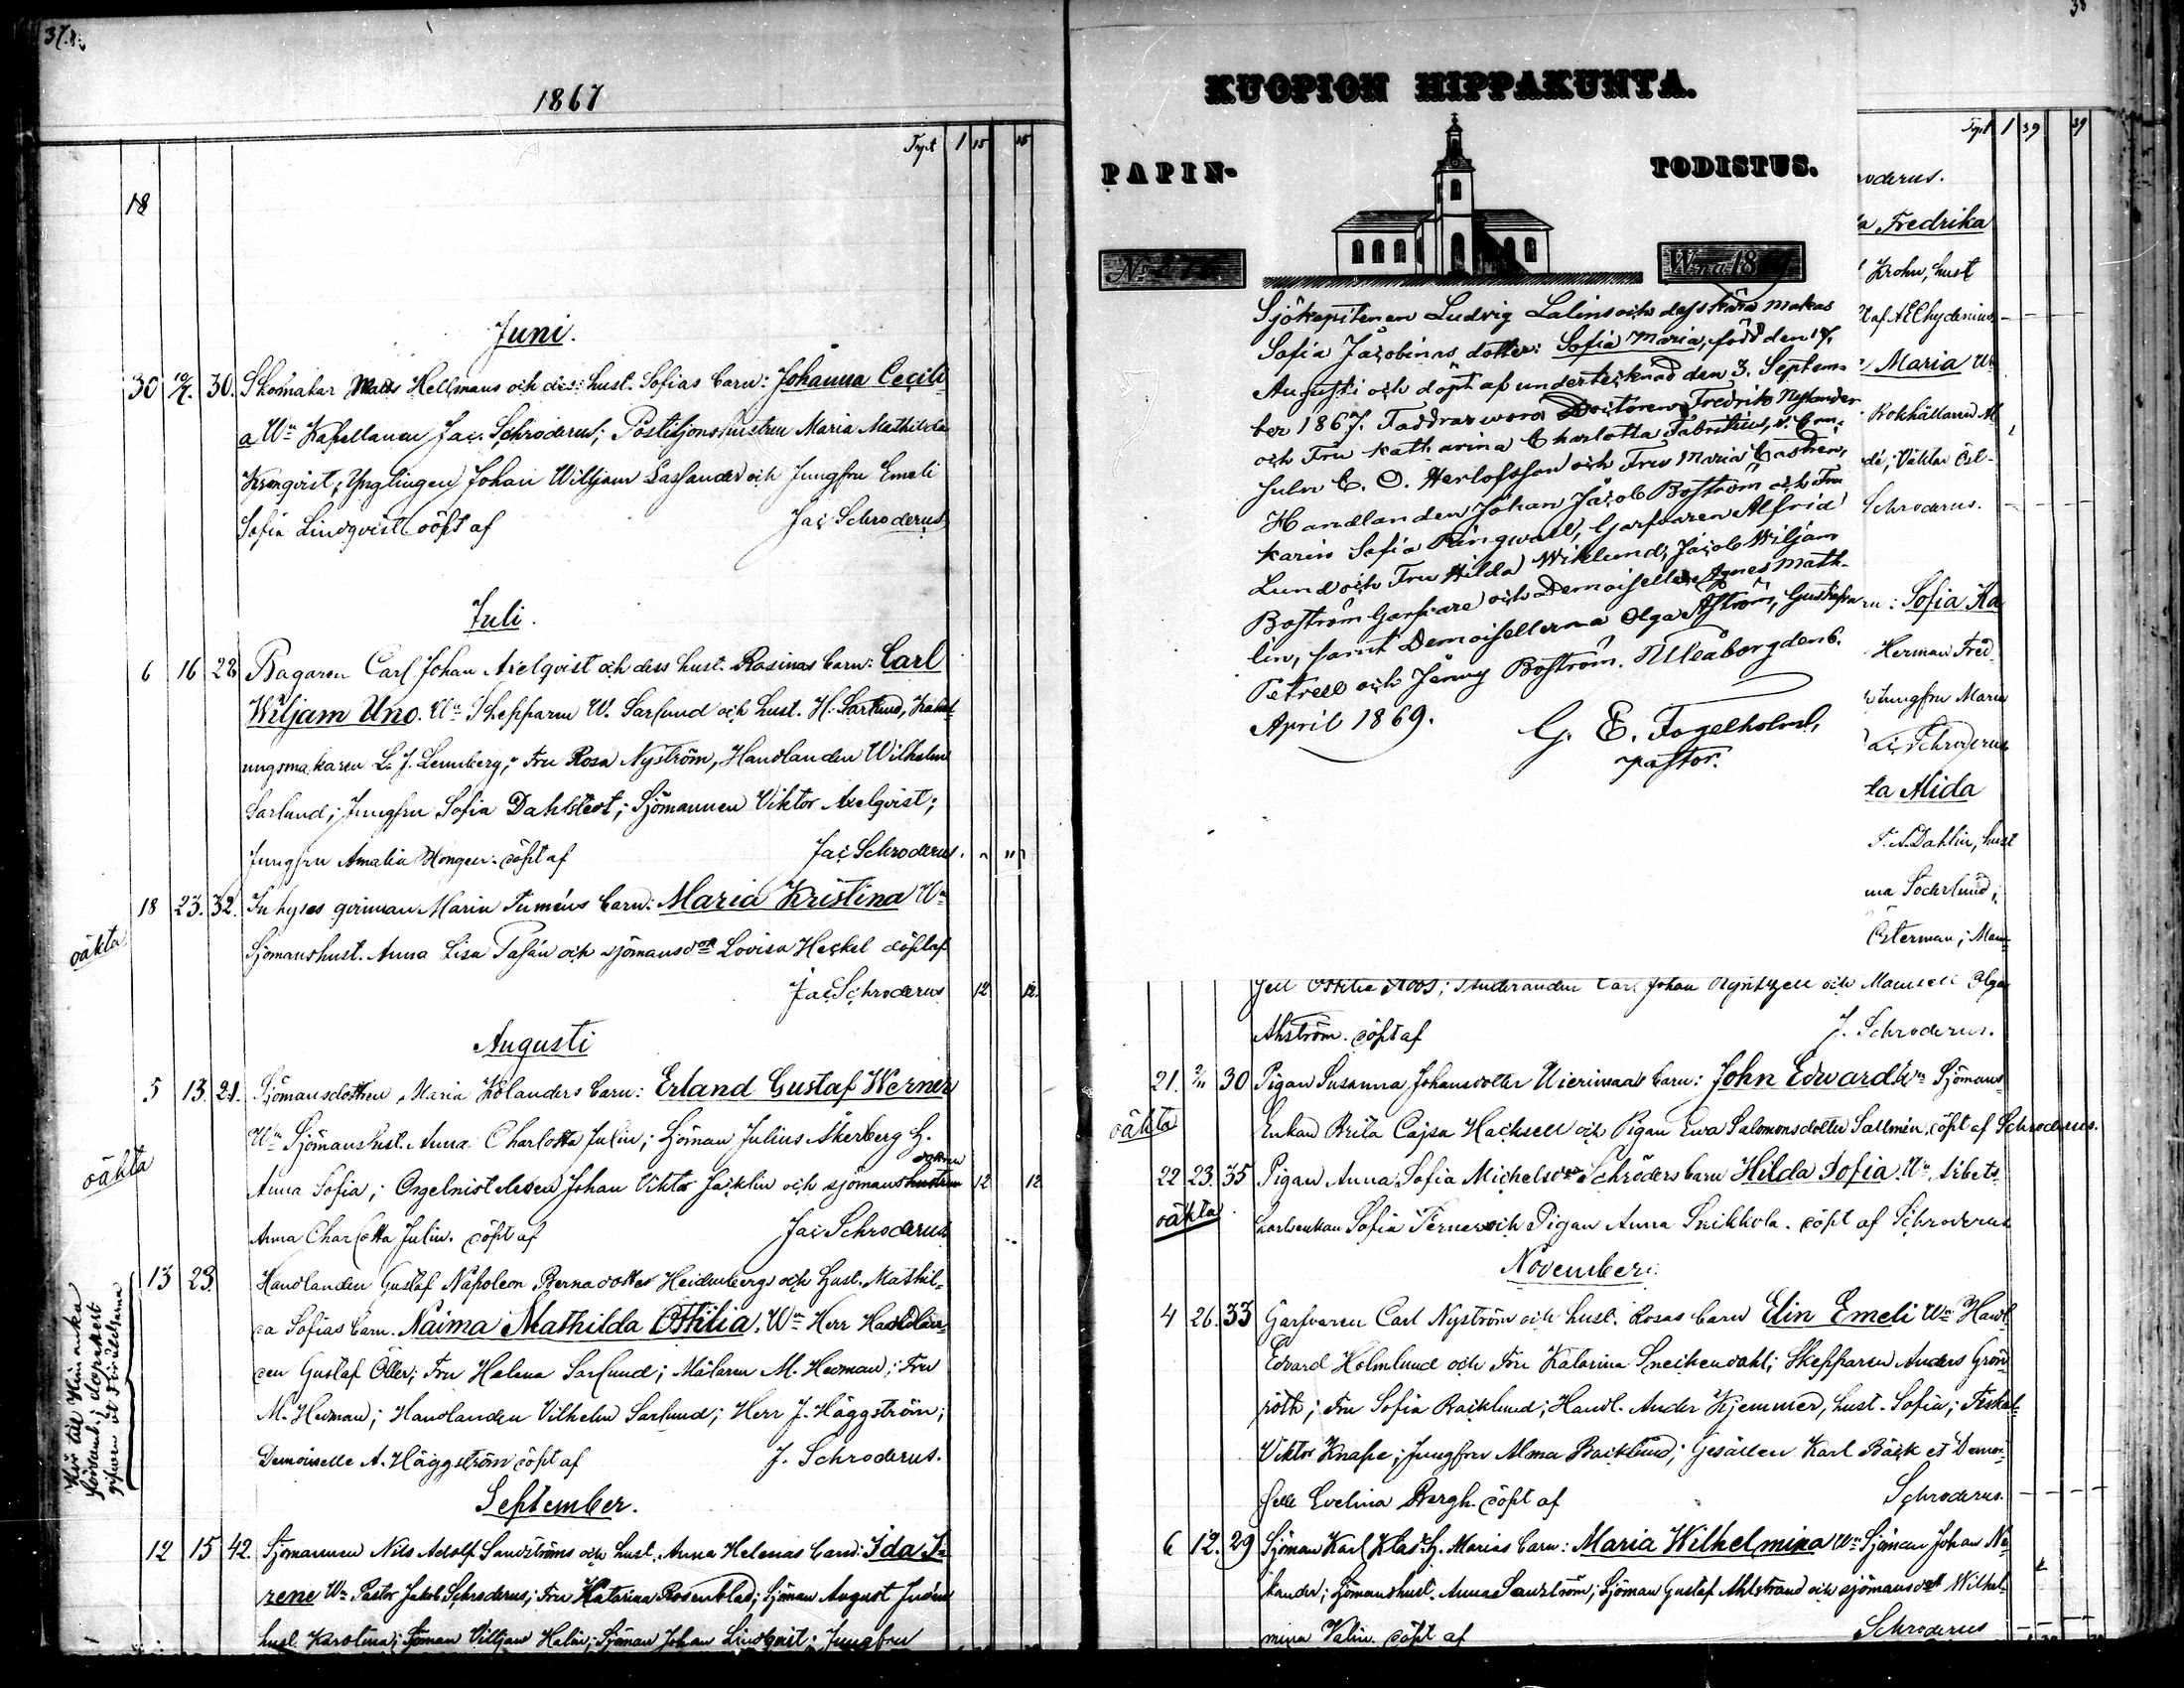 37.
1867
Fyrk 1 15 15
18
Juni.
30 10/7. 30. Skomakar Matts Hellmans och dess hust. Sofias barn: Johanna Cecili-
a Wn Kapellanen Jac. Schroderus; Postiljonshustrun Maria Mathilda
Kronqvist; Ynglingen Johan Williams Lassander och Jungfru Emeli
Sofia Lindqvist döpt af Jac Schroderus
Juli.
6 16 28 Bagaren Carl Johan Axelqvist och dess hust. Rosinas barn: Carl
Wiljam Uno. Wn Skepparen W. Sarlund och hust. H. Sarlund,
ungsmakaren L. J. Lemberg; Fru Rosa Nyström, Handlanden Wilhelm
Sarlund; Jungfru Sofia Dahlstedt; Sjömannen Viktor Axelqvist;
Jungfru Amalia Mongeu. döpt af Jac Schroderus.
18 23. 32. Inhyses qvinnan Maria Tuméns barn: Maria Kristina Wn
oäkta
Sjömanshust. Anna Lisa Pasán och sjömansdotr Lovisa Heckel döpt af
Jac Schroderus 12 12.
Augusti
5 13. 21. Sjömansdottren Maria Kölanders barn: Erland Gustaf Werner
Wn Sjömanshust. Anna Charlotta Julin; Sjöman Julius Åkerberg H.
oäkta
dottren
Anna Sofia; Orgelnist eleven Johan Viktor Jacklin och sjömanshustrun 12 12
Anna Charlotta Julin. döpt af Jac Schroderus
13 23. Handlanden Gustaf Napoleon Bernadottes Heidenbergs och Hust. Mathil-
da Sofias barn. Naima Mathilda Ottilia. Wn Herr Handlan-
den Gustaf Öller; Fru Helena Sarlund; Målaren M. Hedman; Fru
M. Hedman; Handlanden Vilhelm Sarlund; Herr J. Häggström;
Demoiselle A. Häggström döpt af J. Schroderus.
Hit till Himanka
församl; dopattest
gifven åt föräldrarna
September.
12 15 42. Sjömannen Nils Adolf Sandströms och hust. Anna Helenas barn: Ida I-
rene Wn Pastor Jakob Schroderus; Fru Katarina Rosenblad; Sjöman August Judén
hust. Karolina; Sjöman Viljam Halin; Sjöman Johan Lindqvist; Jungfru
KUOPION HIPPAKUNTA.
PAPIN- TODISTUS.
No W-na 18
Sjökaptenen Ludvig Lalins och dess kära makas
Sofia Jacobinas dotter: Sofia Maria, född den 17
Augusti och döpt af undertecknad den 3. Septem-
ber 1867. Faddrar woro Doctoren Fredrik Nylander
och Fru Katharina Charlotta Fabritius, v. Con-
suln C. O. Herlofsson och Fru Maria Castrén,
Handlanden Johan Jacob Boström och Fru
Karin Sofia Ringwall, Garfvaren Alfrid
Lund och Fru Hilda Wiklund, Jacob Wiljam
Boström Garfvare och Demoisellen Agnes Math-
lin, samt Demoisellerna Olga Åström, Gustafva
Petrell och Jenny Boström. Uleåborg den 6.
April 1869. G. E. Fogelholm,
pastor.
38
Fyrk 1 39 39
roderus.
a Fredrika
Krohn, hust
af A E Chydenius
Maria Wn
Bokhållaren Al
dé; Väktar Öst-
Schroderus.
rn: Sofia Ka
Herman Fred
Jungfru Maria
ac Schroderus
da Alida
F. A. Dahlin, hust
ma Söderlund;
Österman; Mam-
sell Ottilia Roos; Studeranden Carl Johan Nyntzell och Mamsell Olga
Ahlström. döpt af J. Schroderus.
21. 2/11 30 Pigan Susanna Johansdotter Uierimaas barn: John Edward Wn Sjömans-
oäkta
Enkan Brita Cajsa Hacksell och Pigan Ewa Salomonsdotter Sallmén, döpt af Schroderus.
22 23. 35 Pigan Anna Sofia Michelsdotr Schröders barn Hilda Sofia. Wn Arbets-
oäkta
karlsenkan Sofia Ferner och Pigan Anna Snikkola. döpt af Schroderus
November.
4 26. 33 Garfvaren Carl Nyström och hust. Rosas barn Elin Emeli Wn Handl.
Edvard Holmlund och Fru Katarina Sneckendahl; Skepparen Anders Grön-
roth; Fru Sofia Backlund; Handl. Ander Kjemmer, hust. Sofia; Fiskal-
Viktor Knape; Jungfru Alma Backlund; Gesällen Karl Bäck et Demoi-
selle Evelina Bergh. döpt af Schroderus.
6 12. 29 Sjöman Karl Klas H. Marias barn: Maria Wilhelmina Wn Sjöman Johan Ny-
lander; Sjömanshust. Anna Sandström; Sjöman Gustaf Ahlstrand och sjömansdotr Wilhel-
mina Valin. döpt af Schroderus